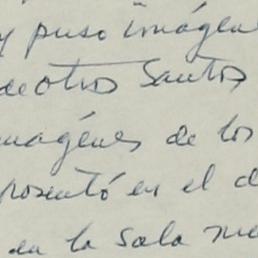 y puso imágen
de otros Santos
imagénes de los
posentó en el d
en la sala me